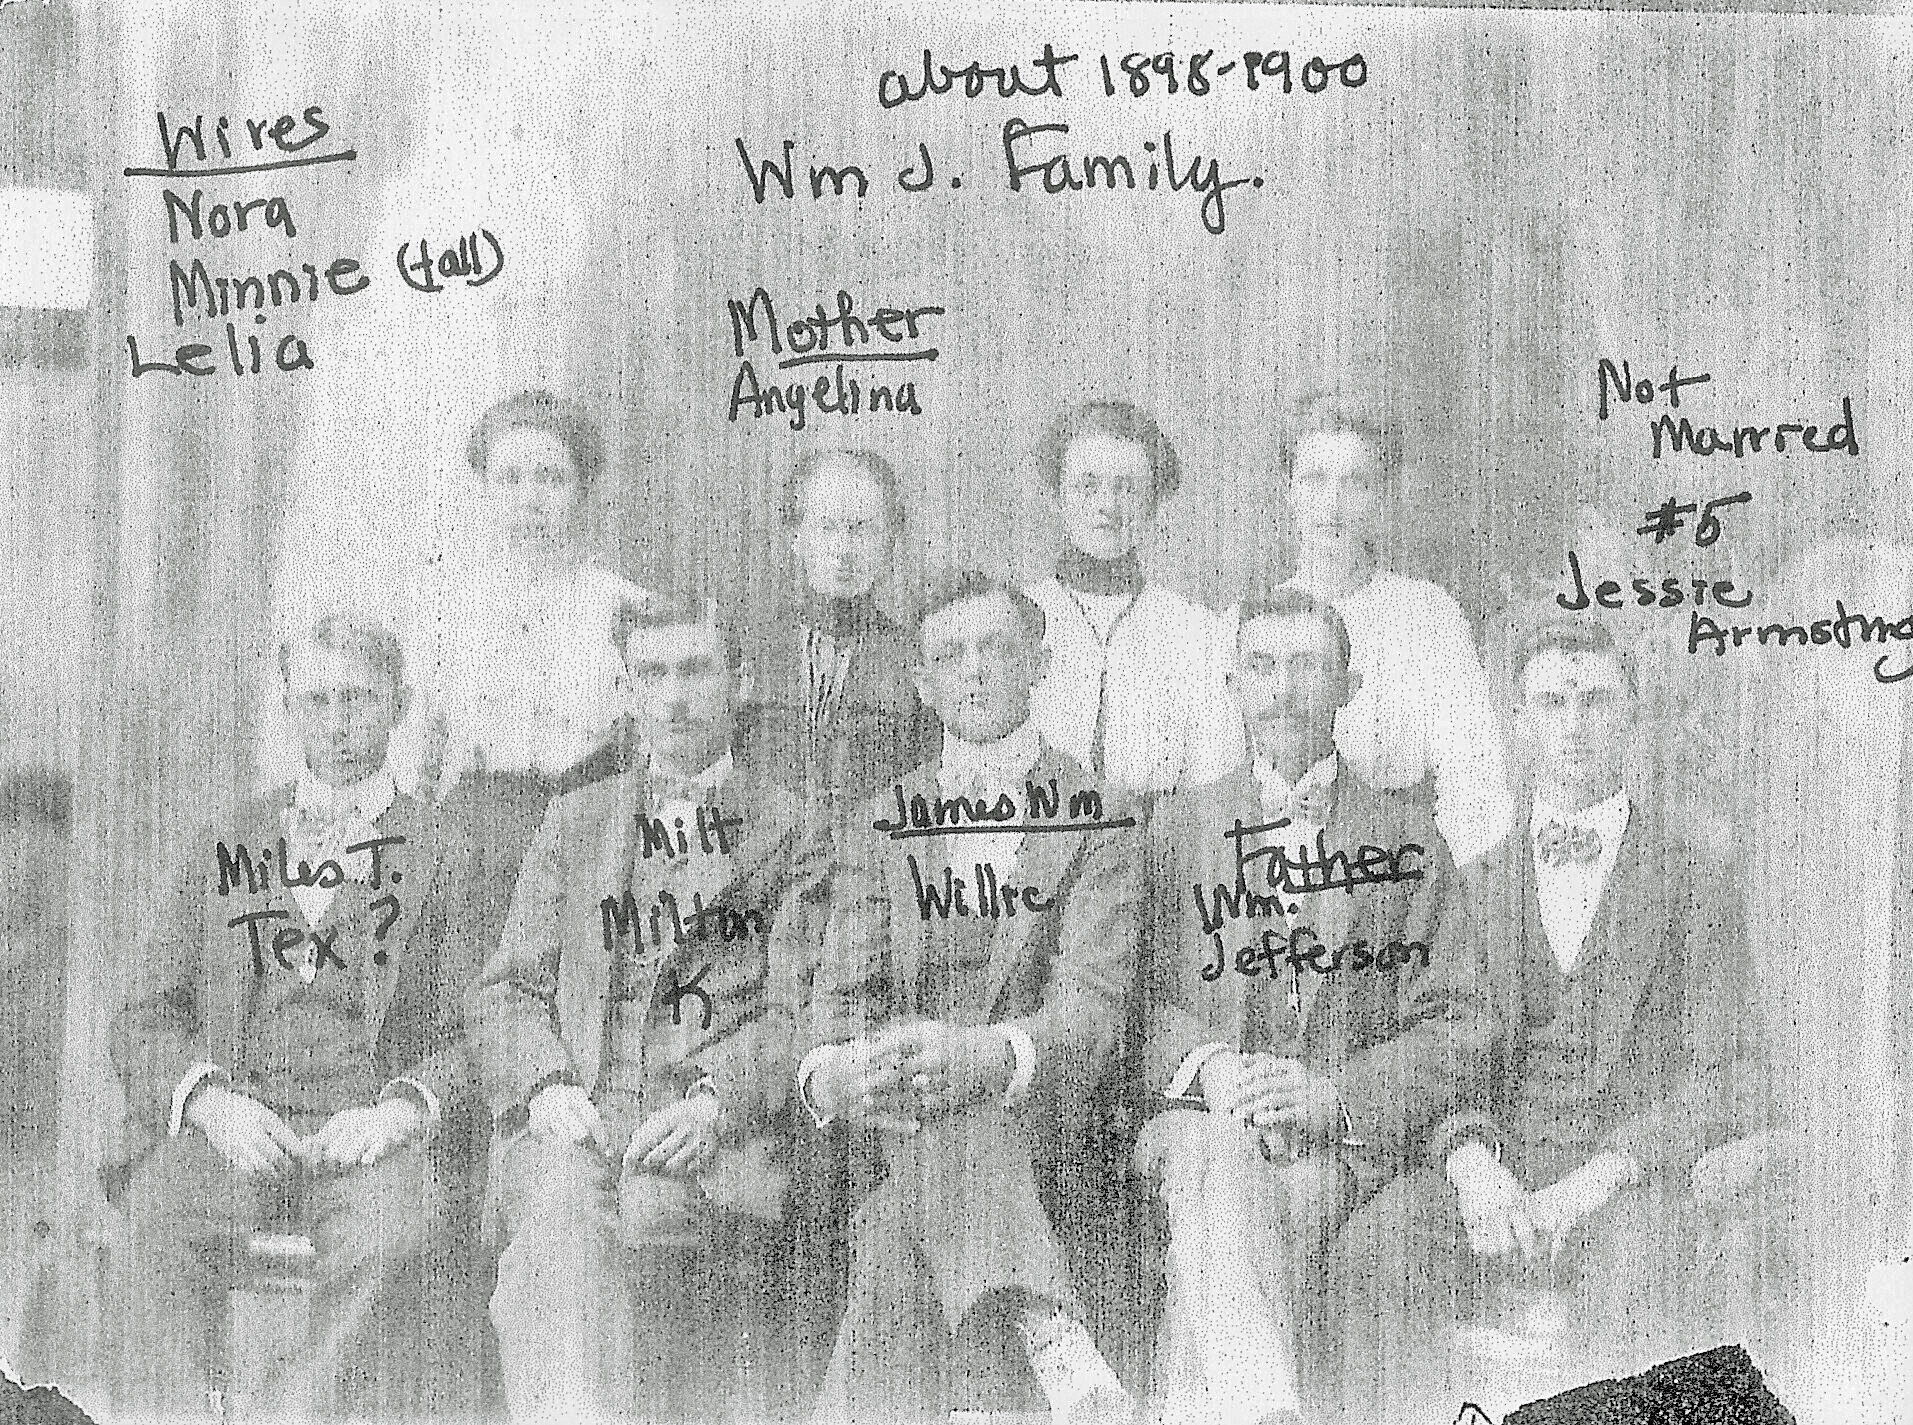 about 1898-1900
Wm J. Family.
Wives
Nora
Minnie (tall)
Lelia
Mother
Angelina
Not
Married
#5
Jessie
Armstrng
Miles T.
Tex?
Milt
Milton
K
James Wm
Willie
Father
Wm.
Jefferson